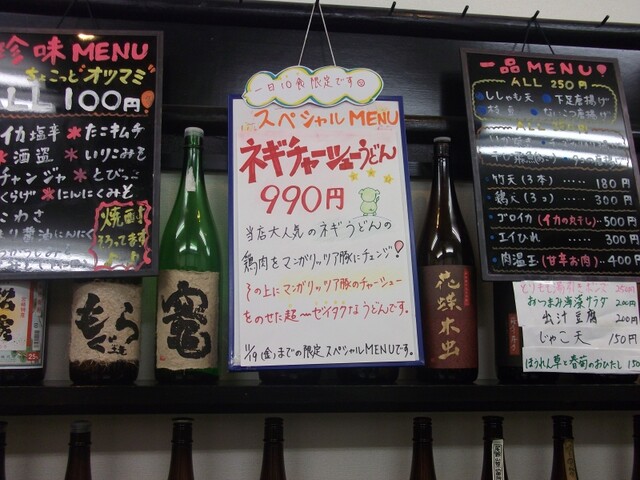 珍味MENU
ちょこっと"オツマミ"
ALL 100円!
イカ塩辛 * たこキムチ
* 酒盗 * いりこみそ
チャンジャ * とびっこ
くらげ * にんにくみそ
こわさ
り醤油にんにく
焼酎
そろってます
もぐら
竈
一日10食限定です
スペシャルMENU
ネギチャーシューうどん
990円
当店大人気のネギうどんの
鶏肉をマンガリッツア豚にチェンジ!
その上にマンガリッツア豚のチャーシュー
をのせた超〜ゼイタクなうどんです。
11/19(金)までの限定スペシャルMENUです。
花蝶木虫
一品MENU!
ALL 250円
ししゃも天 下足唐揚げ
竹天(3本)…… 180円
鶏天(3コ)…… 300円
ゴロイカ(イカの丸干し)… 500円
エイひれ …… 300円
肉温玉(甘辛お肉)… 400円
おつまみ海藻サラダ 200円
出汁豆腐 200円
じゃこ天 150円
ほうれん草と春菊のおひたし 150